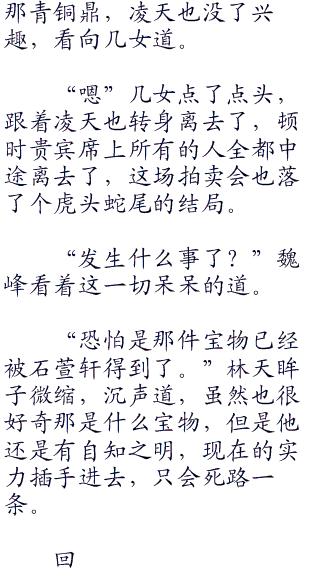 那青铜鼎，凌天也没了兴
趣，看向几女道。
“嗯”几女点了点头，
跟着凌天也转身离去了，顿
时贵宾席上所有的人全都中
途离去了，这场拍卖会也落
了个虎头蛇尾的结局。
“发生什么事了？”魏
峰看着这一切呆呆的道。
“恐怕是那件宝物已经
被石萱轩得到了。”林天眸
子微缩，沉声道，虽然也很
好奇那是什么宝物，但是他
还是有自知之明，现在的实
力插手进去，只会死路一
条。
回